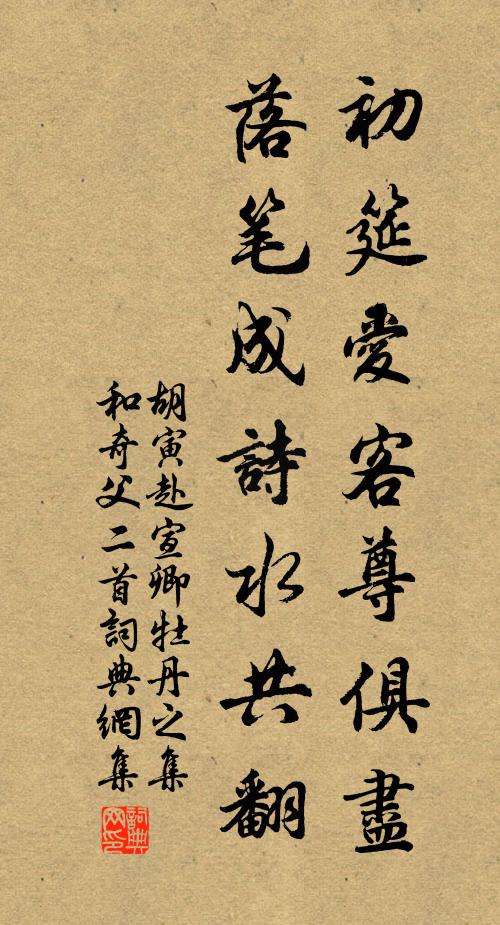 初筵愛客尊俱盡
落笔成詩水共翻
胡寅赴宣卿牡丹之集
和奇父二首詞典網集
詞典
网印